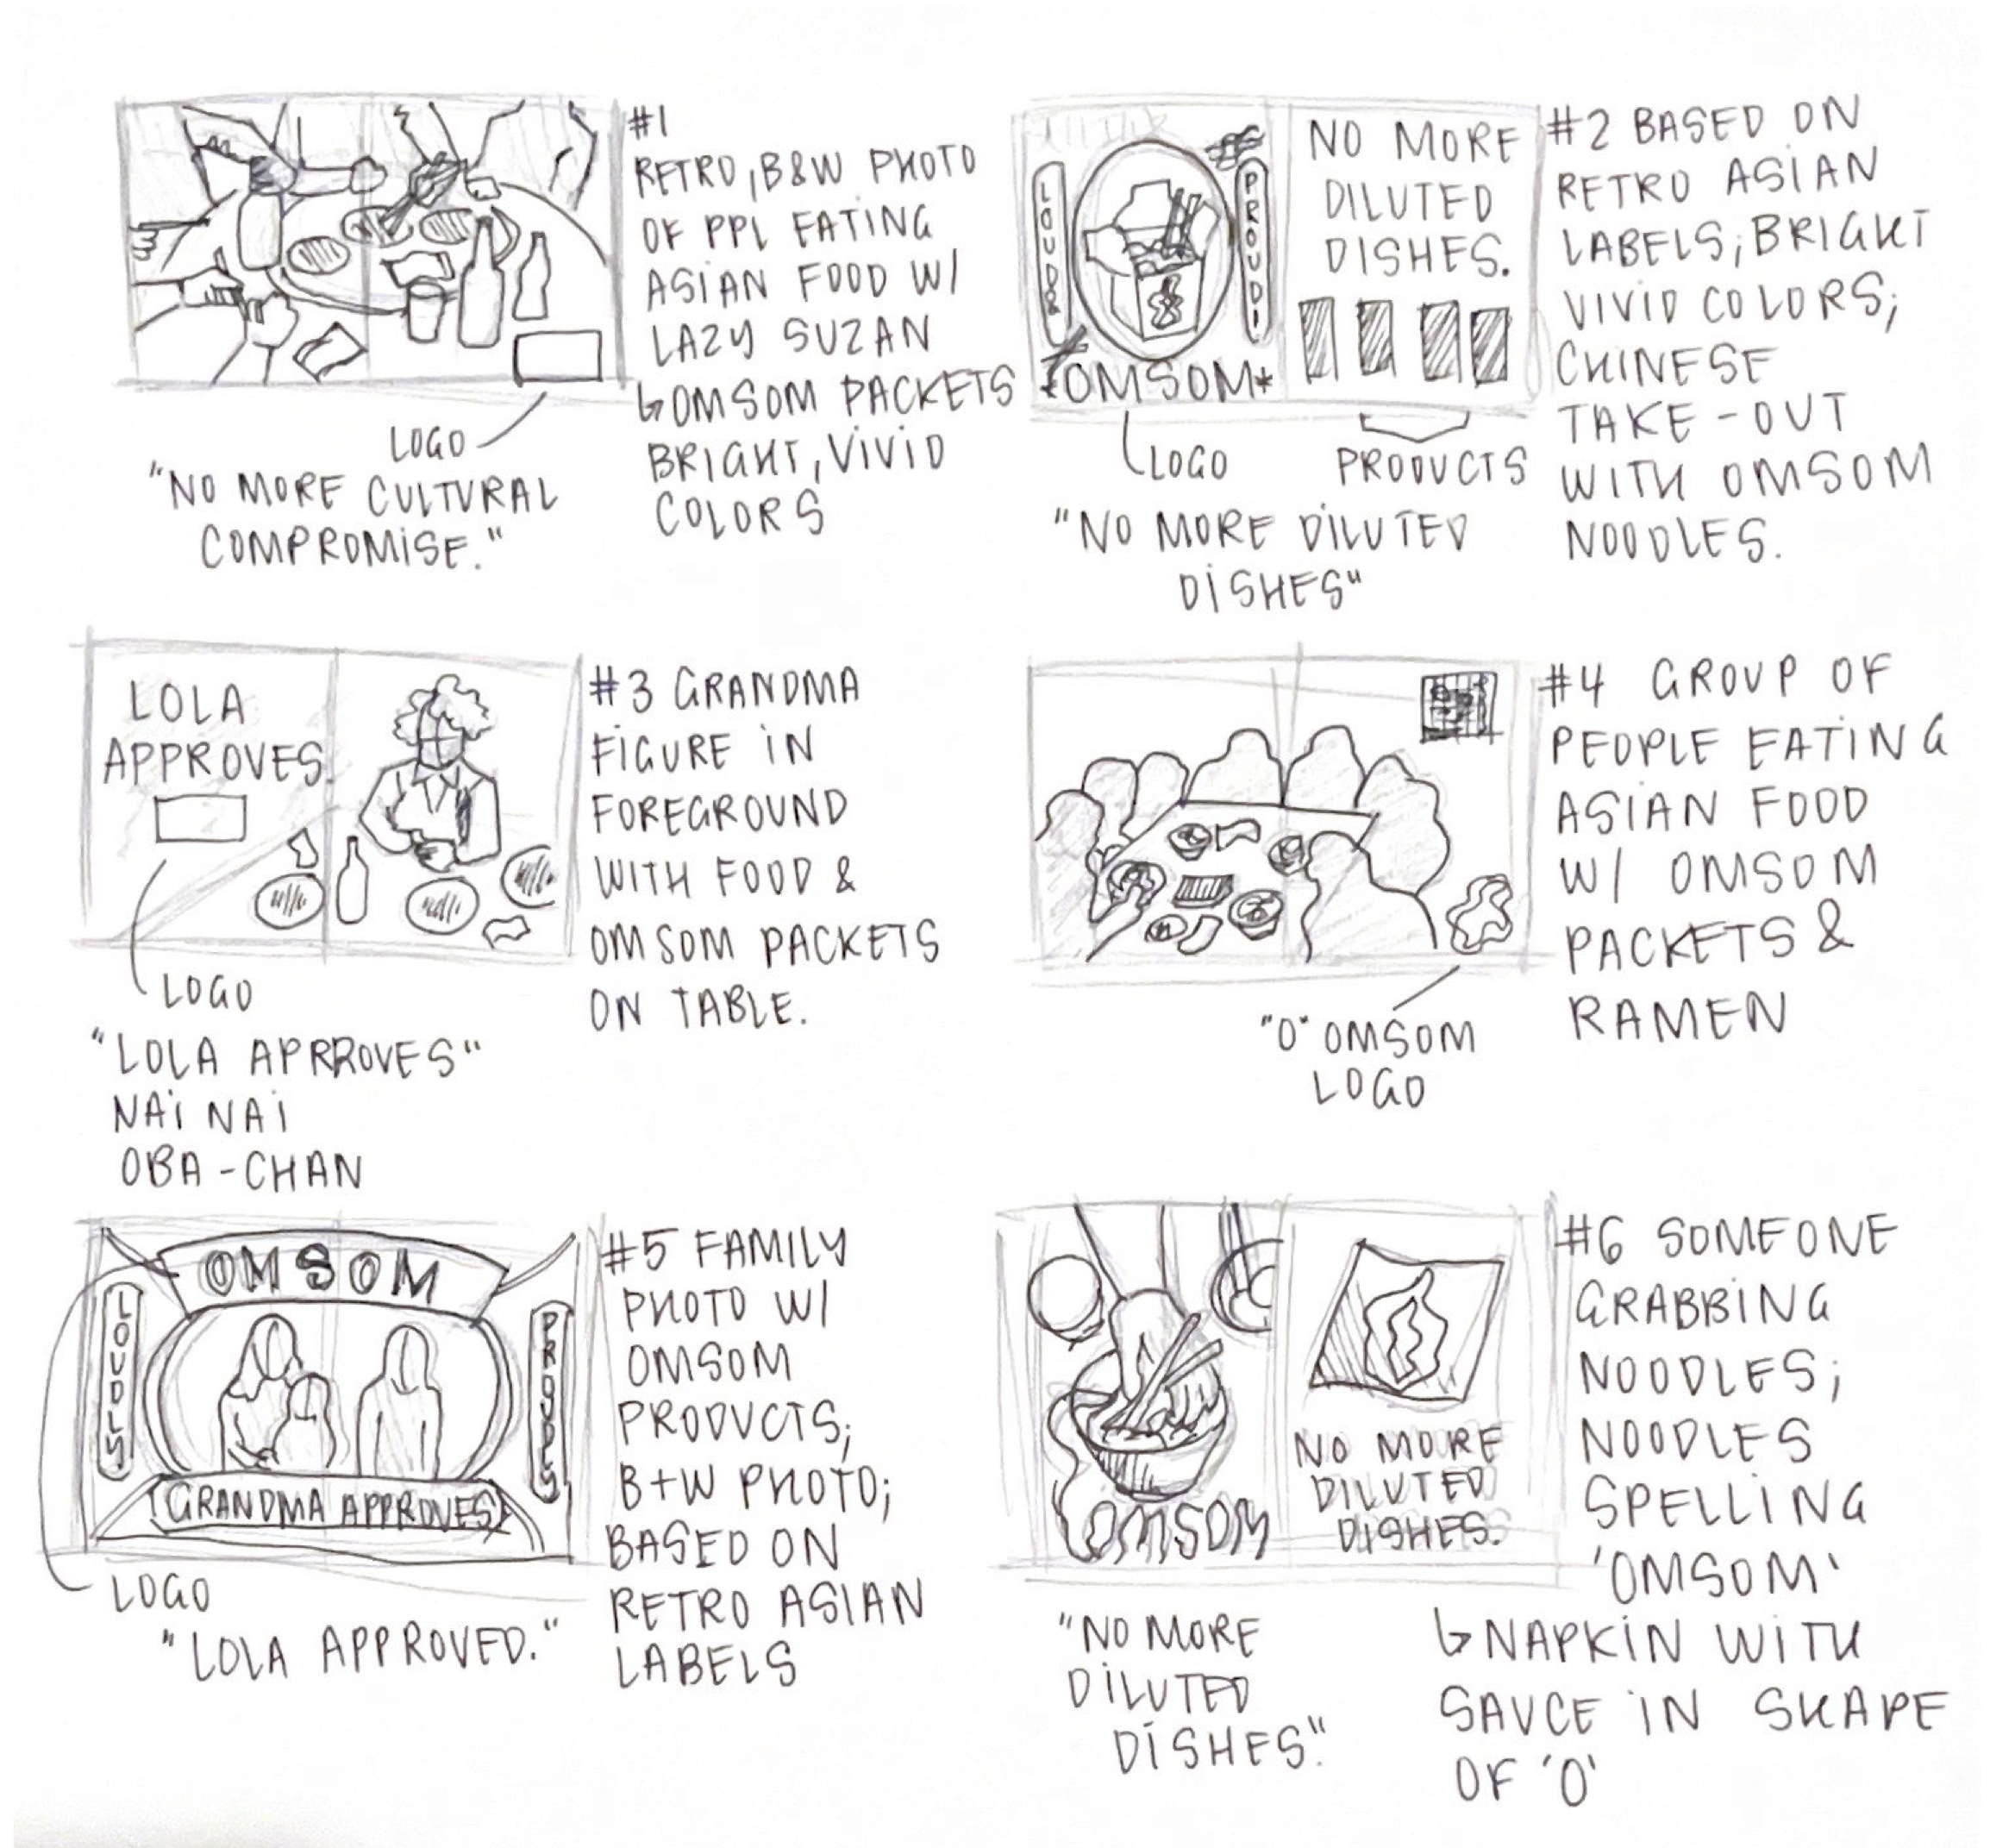 #1
RETRO, B&W PHOTO
OF PPL EATING
ASIAN FOOD W/
LAZY SUZAN
↳OMSOM PACKETS
BRIGHT, VIVID
COLORS
LOGO
"NO MORE CULTURAL
COMPROMISE."
LOUD &
PROUD!
*OMSOM*
NO MORE
DILUTED
DISHES.
#2 BASED ON
RETRO ASIAN
LABELS; BRIGHT
VIVID COLORS;
CHINESE
TAKE-OUT
WITH OMSOM
NOODLES.
LOGO
PRODUCTS
"NO MORE DILUTED
DISHES"
LOLA
APPROVES.
#3 GRANDMA
FIGURE IN
FOREGROUND
WITH FOOD &
OMSOM PACKETS
ON TABLE.
LOGO
"LOLA APRROVES"
NAI NAI
OBA-CHAN
#4 GROUP OF
PEOPLE EATING
ASIAN FOOD
W/ OMSOM
PACKETS &
RAMEN
"O" OMSOM
LOGO
OMSOM
LOUDLY
PROUDLY
GRANDMA APPROVES
#5 FAMILY
PHOTO W/
OMSOM
PRODUCTS;
B+W PHOTO;
BASED ON
RETRO ASIAN
LABELS
LOGO
"LOLA APPROVED."
OMSOM
NO MORE
DILUTED
DISHES.
#6 SOMEONE
GRABBING
NOODLES;
NOODLES
SPELLING
'OMSOM'
↳NAPKIN WITH
SAUCE IN SHAPE
OF 'O'
"NO MORE
DILUTED
DISHES."